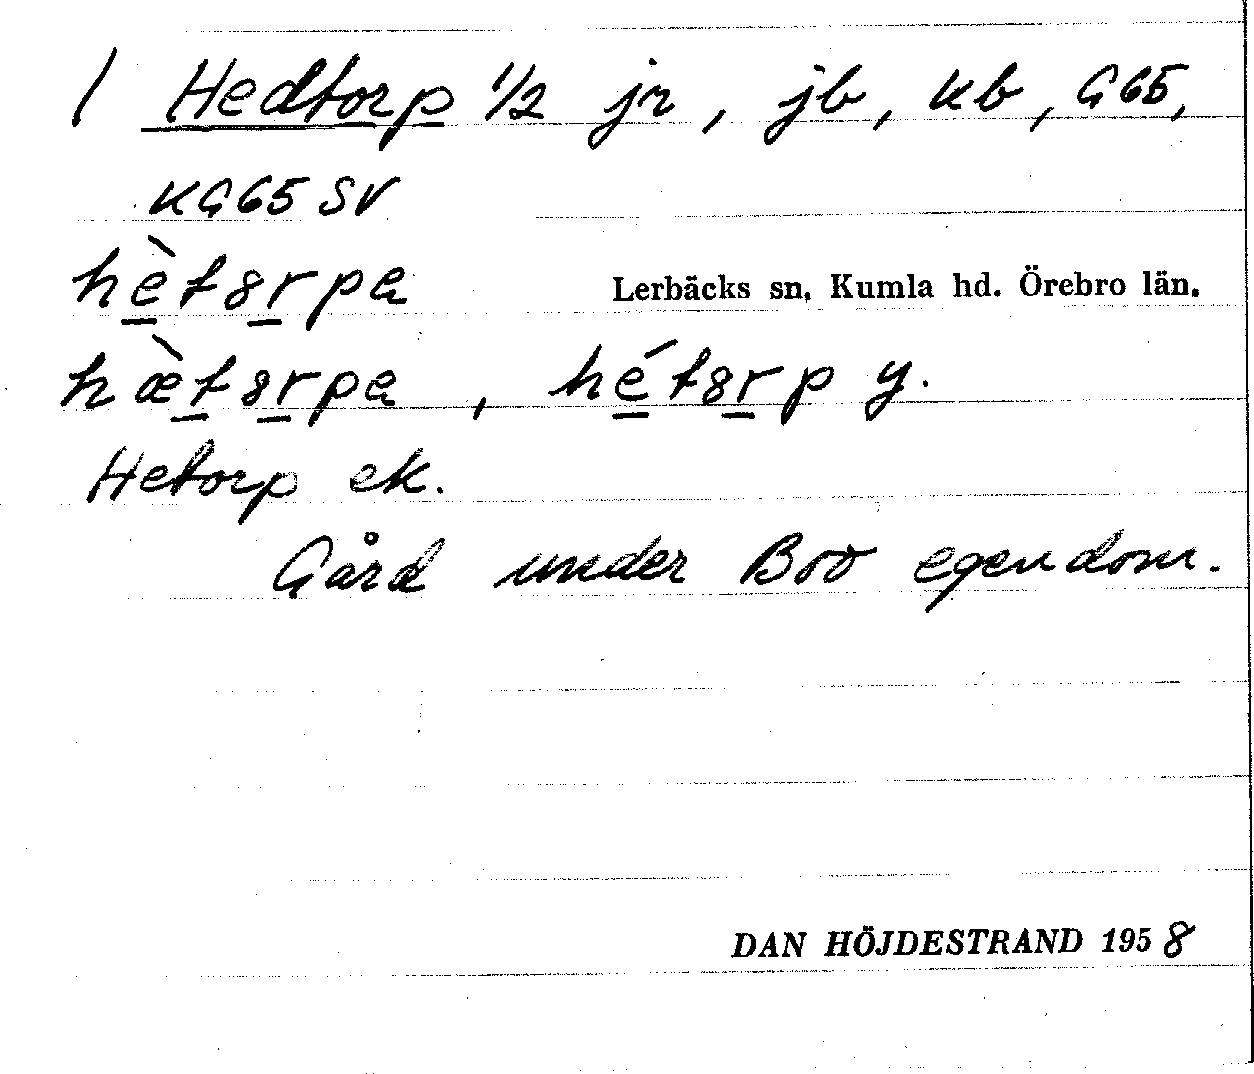 / Hedtorp 1/2 jr, jb, kb, G65,
KG65 SV
hèt8rpa
Lerbäcks sn, Kumla hd. Örebro län.
hæ̀t8rpa, hét8rp y.
Hetorp ek.
Gård under Boo egendom.
DAN HÖJDESTRAND 1958